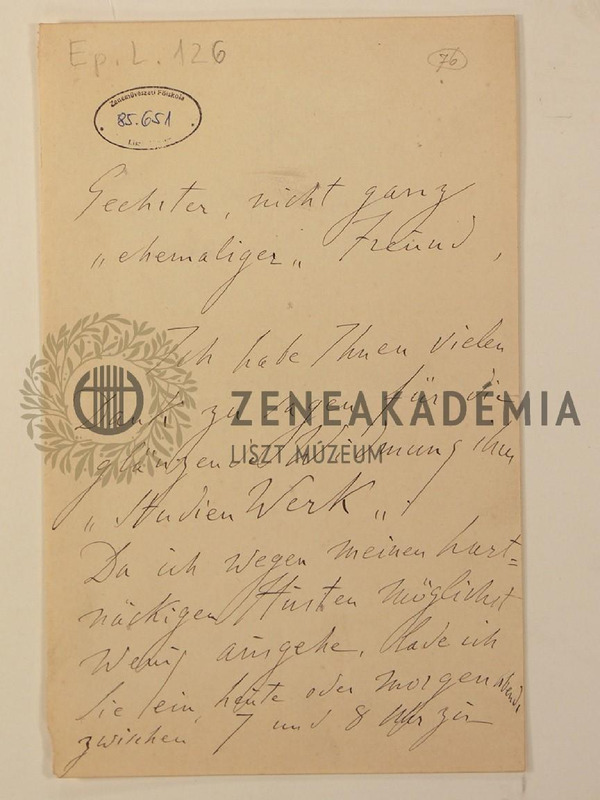 Ep. L. 126
76
Zeneművészeti Főiskola
85.651
Geehrter, nicht ganz
„ehemaliger„ Freund,
Ich habe Ihnen vielen
Dank zu sagen für die
glänzende Widmung ihres
„Studien Werk„.
Da ich wegen meinen hart=
näckigen Husten möglichst
wenig ausgehe, lade ich
Sie ein, heute oder morgen abends
zwischen 7 und 8 Uhr zu
ZENEAKADÉMIA
LISZT MÚZEUM